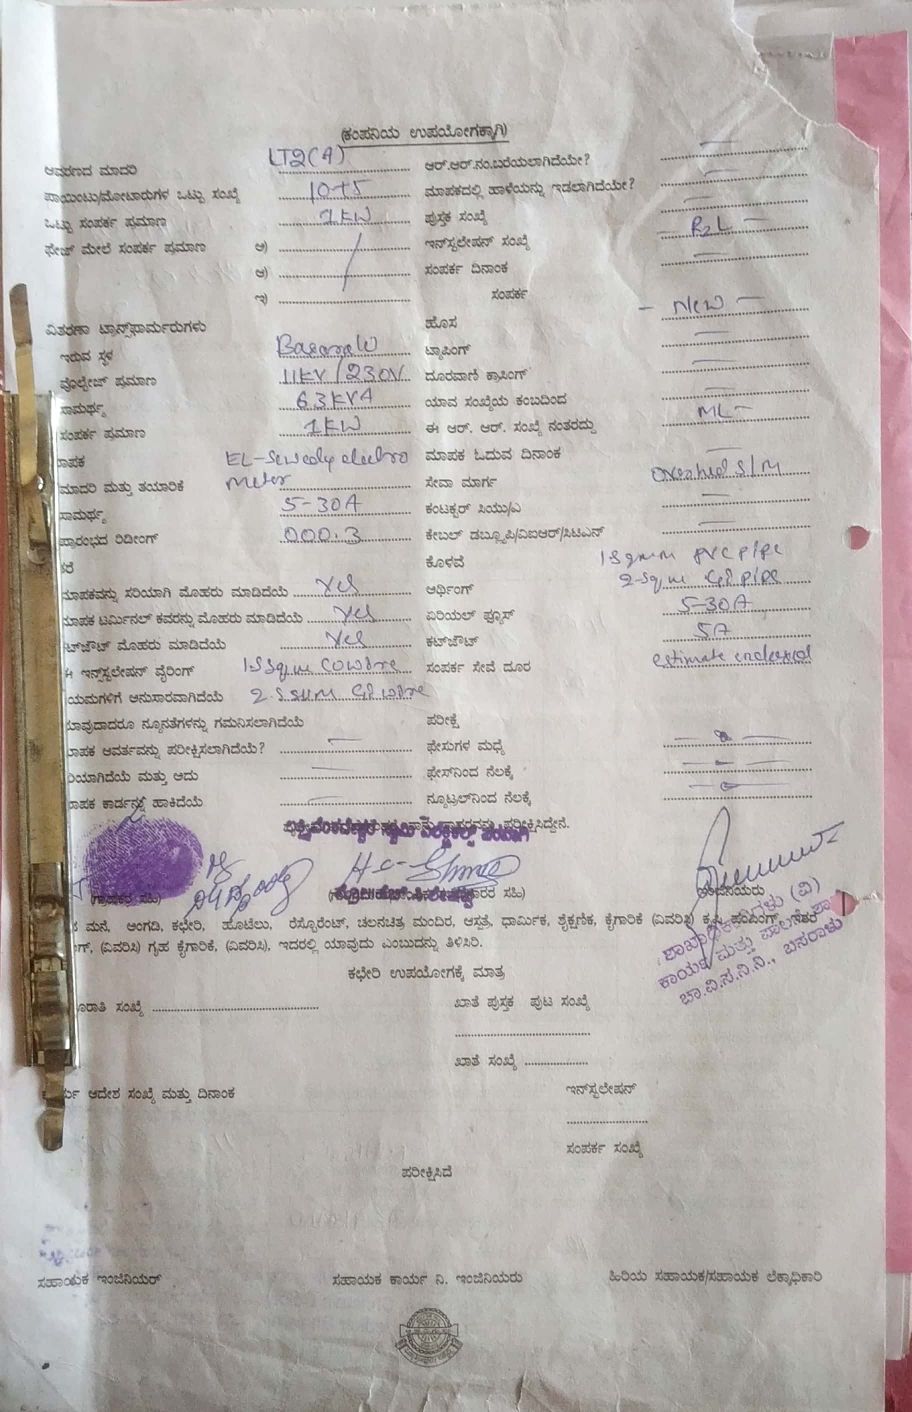 (ಕಂಪನಿಯ ಉಪಯೋಗಕ್ಕಾಗಿ)
ಆವರಣದ ಮಾದರಿ LT2(A) ಆರ್.ಆರ್.ನಂ.ಬರೆಯಲಾಗಿದೆಯೇ? —
ಪಾಯಿಂಟು/ಮೋಟಾರುಗಳ ಒಟ್ಟು ಸಂಖ್ಯೆ 10+5 ಮಾಪಕದಲ್ಲಿ ಹಾಳೆಯನ್ನು ಇಡಲಾಗಿದೆಯೇ? —
ಒಟ್ಟು ಸಂಪರ್ಕ ಪ್ರಮಾಣ 1KW ಪುಸ್ತಕ ಸಂಖ್ಯೆ —
ಫೇಜ್ ಮೇಲೆ ಸಂಪರ್ಕ ಪ್ರಮಾಣ ಅ) ಇನ್‌ಸ್ಟಲೇಷನ್ ಸಂಖ್ಯೆ — R2L —
ಆ) ಸಂಪರ್ಕ ದಿನಾಂಕ —
ಇ) ಸಂಪರ್ಕ
ವಿತರಣಾ ಟ್ರಾನ್ಸ್‌ಫಾರ್ಮರುಗಳು ಹೊಸ — New —
ಇರುವ ಸ್ಥಳ ಟ್ಯಾಪಿಂಗ್ —
ವೊಲ್ಟೇಜ್ ಪ್ರಮಾಣ 11KV/230V ದೂರವಾಣಿ ಕ್ರಾಸಿಂಗ್ —
ಸಾಮರ್ಥ್ಯ 63KVA ಯಾವ ಸಂಖ್ಯೆಯ ಕಂಬದಿಂದ —
ಸಂಪರ್ಕ ಪ್ರಮಾಣ 1KW ಈ ಆರ್. ಆರ್. ಸಂಖ್ಯೆ ನಂತರದ್ದು ML-
ಾಪಕ electro ಮಾಪಕ ಓದುವ ದಿನಾಂಕ —
ಮಾದರಿ ಮತ್ತು ತಯಾರಿಕೆ meter ಸೇವಾ ಮಾರ್ಗ Overhead S/M
ಸಾಮರ್ಥ್ಯ 5-30A ಕಂಟಕ್ಟರ್ ಸಿಯು/ಎ —
ಪ್ರಾರಂಭದ ರಿಡೀಂಗ್ 000.3 ಕೇಬಲ್ ಡಬ್ಲ್ಯೂಪಿ/ವಿಐಆರ್/ಸಿಟಿಎನ್ —
ಕರೆ ಕೊಳವೆ pvc pipe
ಮಾಪಕವನ್ನು ಸರಿಯಾಗಿ ಮೊಹರು ಮಾಡಿದೆಯೆ Yes ಅರ್ಥಿಂಗ್ GI pipe
ಮಾಪಕ ಟರ್ಮಿನಲ್ ಕವರನ್ನು ಮೊಹರು ಮಾಡಿದೆಯೆ Yes ಏರಿಯಲ್ ಫ್ಯೂಸ್ 5-30A
ಟ್‌ಔಟ್ ಮೊಹರು ಮಾಡಿದೆಯೆ Yes ಕಟ್‌ಔಟ್ 5A
ಈ ಇನ್‌ಸ್ಟಲೇಷನ್ ವೈರಿಂಗ್ ಸಂಪರ್ಕ ಸೇವೆ ದೂರ estimate enclosed
ಯಮಗಳಿಗೆ ಅನುಸಾರವಾಗಿದೆಯೆ GI wire
ಯಾವುದಾದರೂ ನ್ಯೂನತೆಗಳನ್ನು ಗಮನಿಸಲಾಗಿದೆಯೆ ಪರೀಕ್ಷೆ
ಾಪಕ ಆವರ್ತವನ್ನು ಪರೀಕ್ಷಿಸಲಾಗಿದೆಯೆ? — ಫೇಸುಗಳ ಮಧ್ಯೆ
ರಿಯಾಗಿದೆಯೆ ಮತ್ತು ಅದು — ಫೇಸ್‌ನಿಂದ ನೆಲಕ್ಕೆ
ಾಪಕ ಕಾರ್ಡನ್ನು ಹಾಕಿದೆಯೆ — ನ್ಯೂಟ್ರಲ್‌ನಿಂದ ನೆಲಕ್ಕೆ
ಪರೀಕ್ಷಿಸಿದ್ದೇನೆ.
(ಗ್ರಾಹಕರ ಸಹಿ) ಸಹಿ) ಇಂಜಿನಿಯರು
ಮನೆ, ಅಂಗಡಿ, ಕಛೇರಿ, ಹೊಟೆಲು, ರೆಸ್ಟೊರೆಂಟ್, ಚಲನಚಿತ್ರ ಮಂದಿರ, ಆಸ್ಪತ್ರೆ, ಧಾರ್ಮಿಕ, ಶೈಕ್ಷಣಿಕ, ಕೈಗಾರಿಕೆ (ವಿವರಿಸಿ) ಕೃಷಿ ಪಂಪಿಂಗ್, ಇತರೆ
ಂಗ್, (ವಿವರಿಸಿ) ಗೃಹ ಕೈಗಾರಿಕೆ, (ವಿವರಿಸಿ), ಇದರಲ್ಲಿ ಯಾವುದು ಎಂಬುದನ್ನು ತಿಳಿಸಿರಿ.
ಶಾಖಾಧಿಕಾರಿಗಳು (ವಿ)
ಕಾರ್ಯ ಮತ್ತು ಪಾಲನಾ ಶಾಖೆ
ಚಾ.ವಿ.ಸ.ನಿ.ನಿ., ಬಸರಾಳು
ಕಛೇರಿ ಉಪಯೋಗಕ್ಕೆ ಮಾತ್ರ
ರಾತಿ ಸಂಖ್ಯೆ ಖಾತೆ ಪುಸ್ತಕ ಪುಟ ಸಂಖ್ಯೆ
ಖಾತೆ ಸಂಖ್ಯೆ
ಆದೇಶ ಸಂಖ್ಯೆ ಮತ್ತು ದಿನಾಂಕ ಇನ್‌ಸ್ಟಲೇಷನ್
ಸಂಪರ್ಕ ಸಂಖ್ಯೆ
ಪರೀಕ್ಷಿಸಿದೆ
ಸಹಾಯಕ ಇಂಜಿನಿಯರ್ ಸಹಾಯಕ ಕಾರ್ಯ ನಿ. ಇಂಜಿನಿಯರು ಹಿರಿಯ ಸಹಾಯಕ/ಸಹಾಯಕ ಲೆಕ್ಕಾಧಿಕಾರಿ